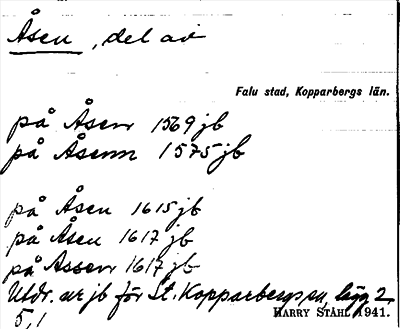 Åsen, del av
Falu stad, Kopparbergs län.
på Åsenn 1569 jb
på Åsenn 1575 jb
på Åsen 1615 jb
på Åsen 1617 jb
på Assen 1617 jb
Utdr. ur jb för St. Kopparbergs sn, lägg 2
5, 1
HARRY STÅHL 1941.